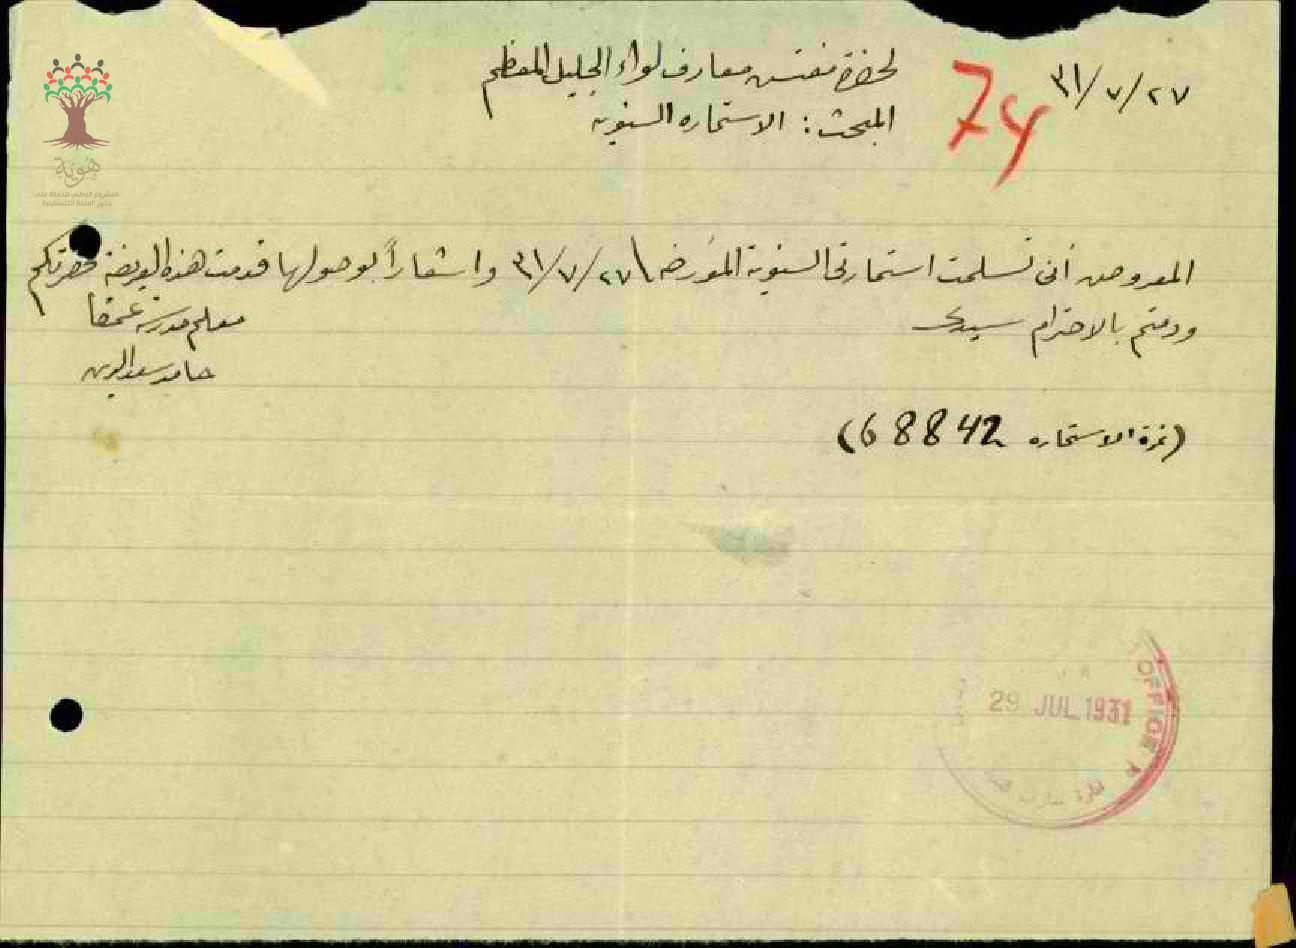 ٢٧/٧/٣١
74
لحضرة مفتش معارف لواء الجليل المعظم
المبحث: الاستمارة السنوية
المعروض أني تسلمت استمارتي السنوية المؤرخة ٢٧/٧/٣١ واشعاراً بوصولها قدمت هذه العريضة لحضرتكم
ودمتم بالاحترام سيدي
معلم مدرسة عمقا
حامد سعد الدين
(نمرة الاستماره 68842)
OFFICE
29 JUL 1931
هوية
المشروع الوطني للحفاظ على
جذور العائلة الفلسطينية